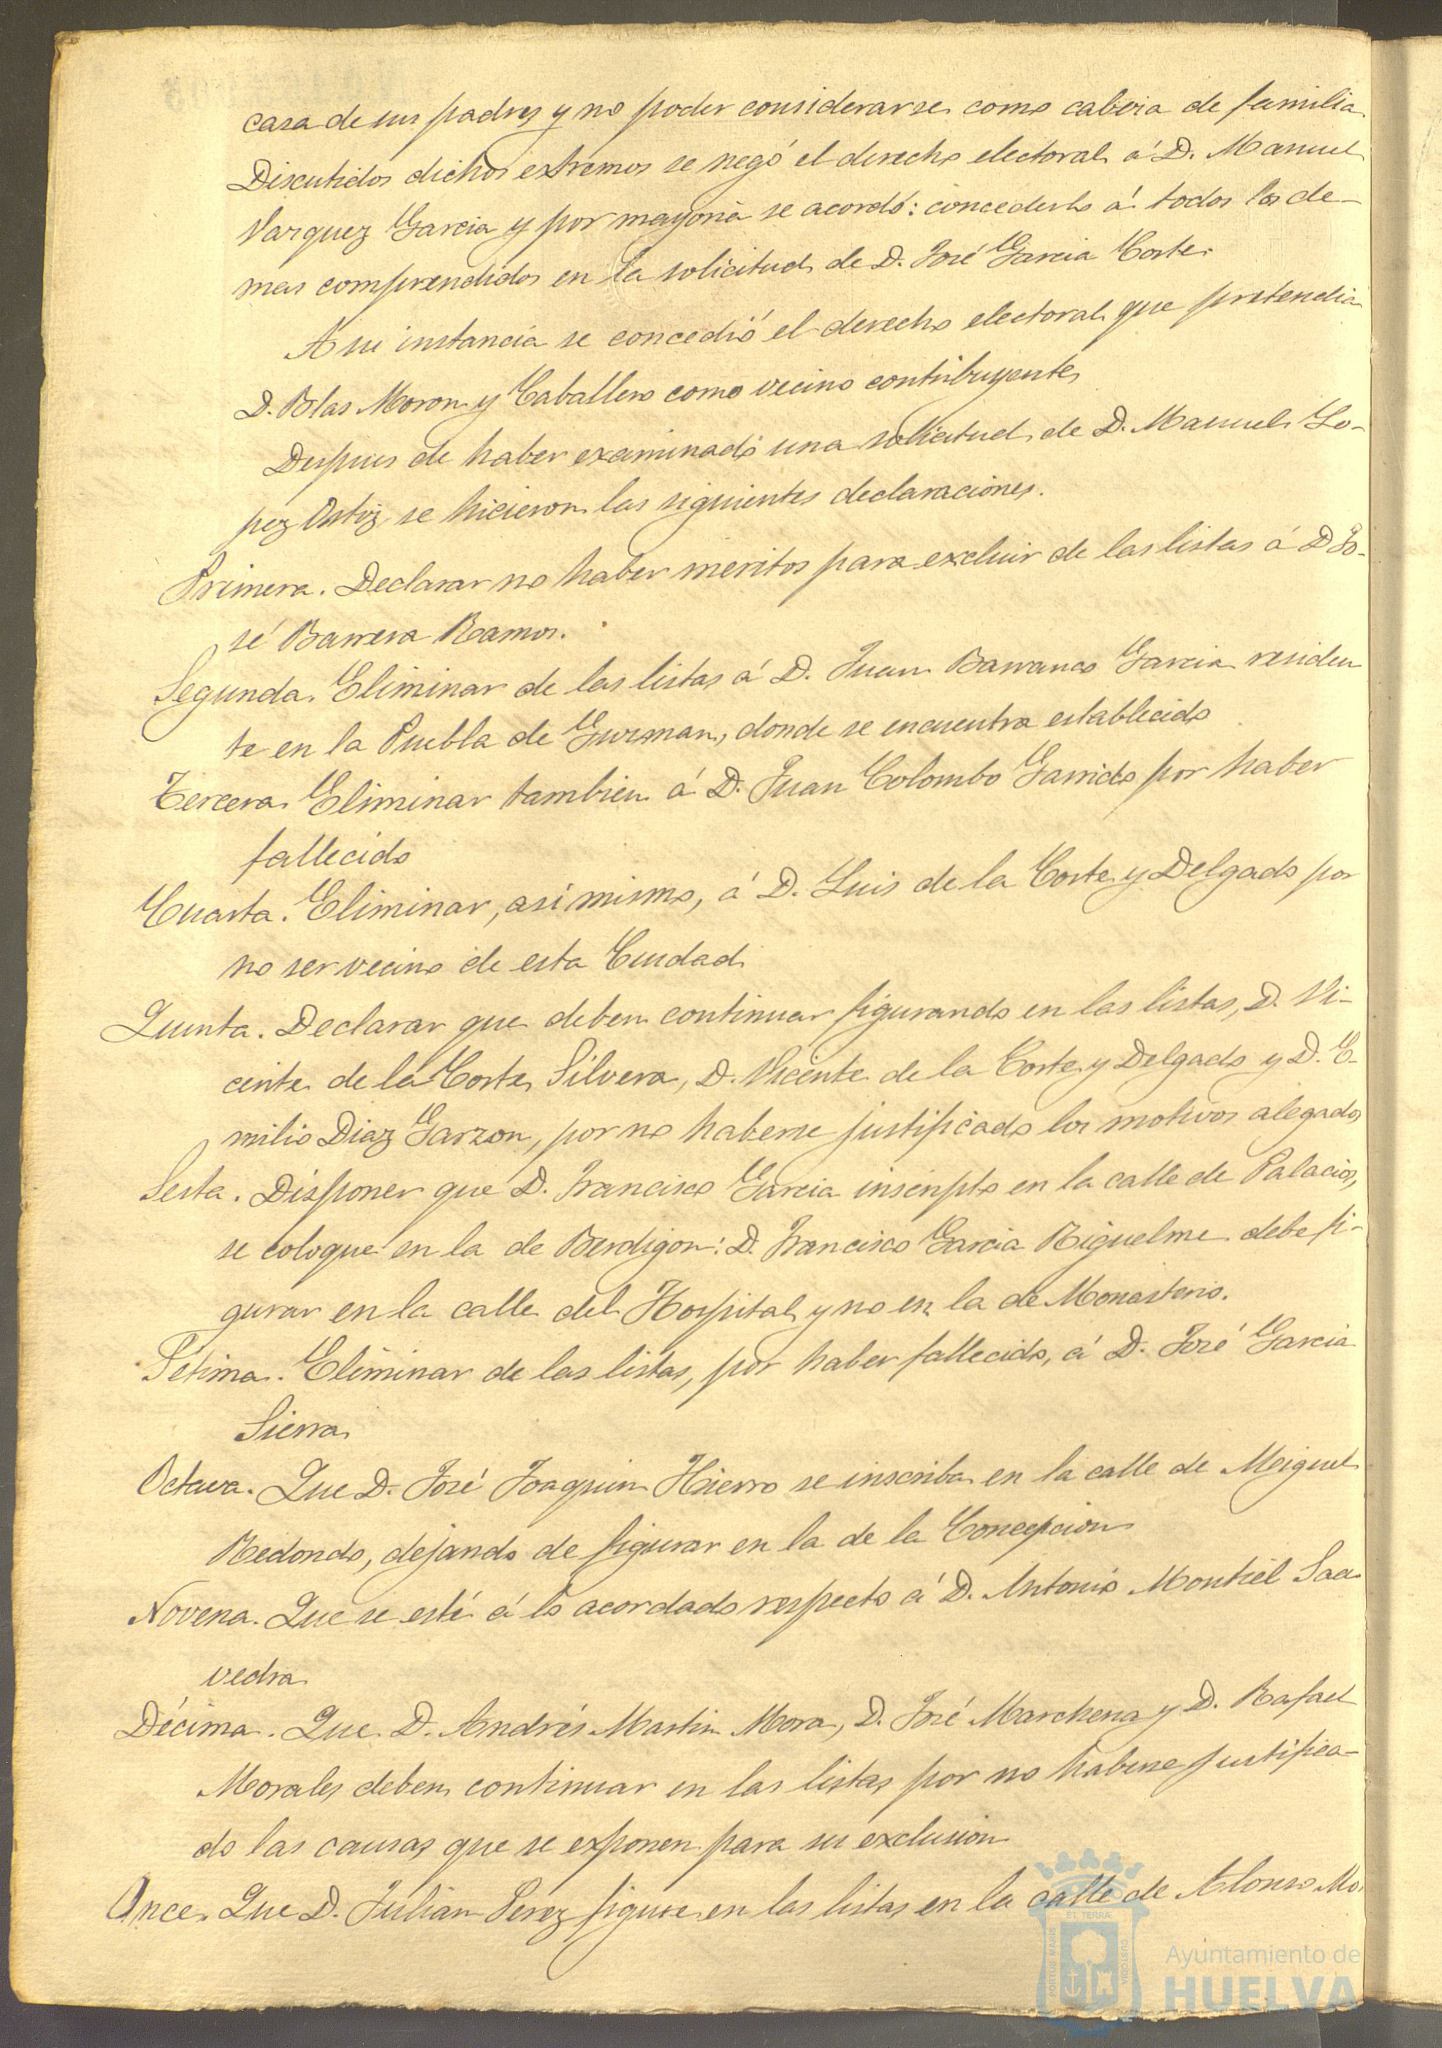 casa de sus padres y no poder considerarse como cabeza de familia
Discutidos dichos extremos se negó el derecho electoral á D. Manuel
Vazquez Garcia y por mayoria se acordó: concederlo á todos los de-
mas comprendidos en la solicitud de D. José Garcia Corte.
A su instancia se concedió el derecho electoral que pretendia
D. Blas Moron y Caballero como vecino contribuyente
Despues de haber examinado una solicitud de D. Manuel Lo-
pez Ortiz se hicieron las siguientes declaraciones.
Primera. Declarar no haber meritos para excluir de las listas á D Jo-
sé Barrera Ramos.
Segunda. Eliminar de las listas á D. Juan Barranco Garcia residen
te en la Puebla de Guzman, donde se encuentra establecido
Tercera. Eliminar tambien á D. Juan Colombo Garrido por haber
fallecido
Cuarta. Eliminar, asi mismo, á D. Luis de la Corte y Delgado por
no ser vecino de esta Ciudad.
Quinta. Declarar que deben continuar figurando en las listas, D. Vi-
cente de la Corte Silvera, D. Vicente de la Corte y Delgado y D. E-
milio Diaz Garzon, por no haberse justificado los motivos alegados
Sesta. Disponer que D. Francisco Garcia inscripto en la calle de Palacios,
se coloque en la de Berdigon: D. Francisco Garcia Riquelme debe fi-
gurar en la calle del Hospital y no en la de Monasterio.
Sétima. Eliminar de las listas, por haber fallecido, á D. José Garcia
Sierra
Octava. Que D. José Joaquin Hierro se inscriba en la calle de Miguel
Redondo, dejando de figurar en la de la Concepcion
Novena. Que se esté á lo acordado respecto á D. Antonio Montiel Saa
vedra
Décima. Que D. Andrés Martin Mora, D. José Marchena y D. Rafael
Morales deben continuar en las listas por no haberse justifica-
do las causas que se exponen para su exclusion
Once. Que D. Julian Perez figure en las listas en la calle de Alonso Mo.
Ayuntamiento de
HUELVA